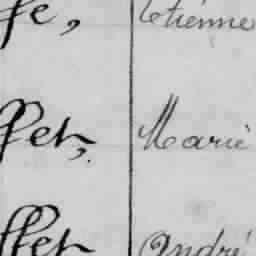 fe, Etienne
ffet, Marie
ffet André